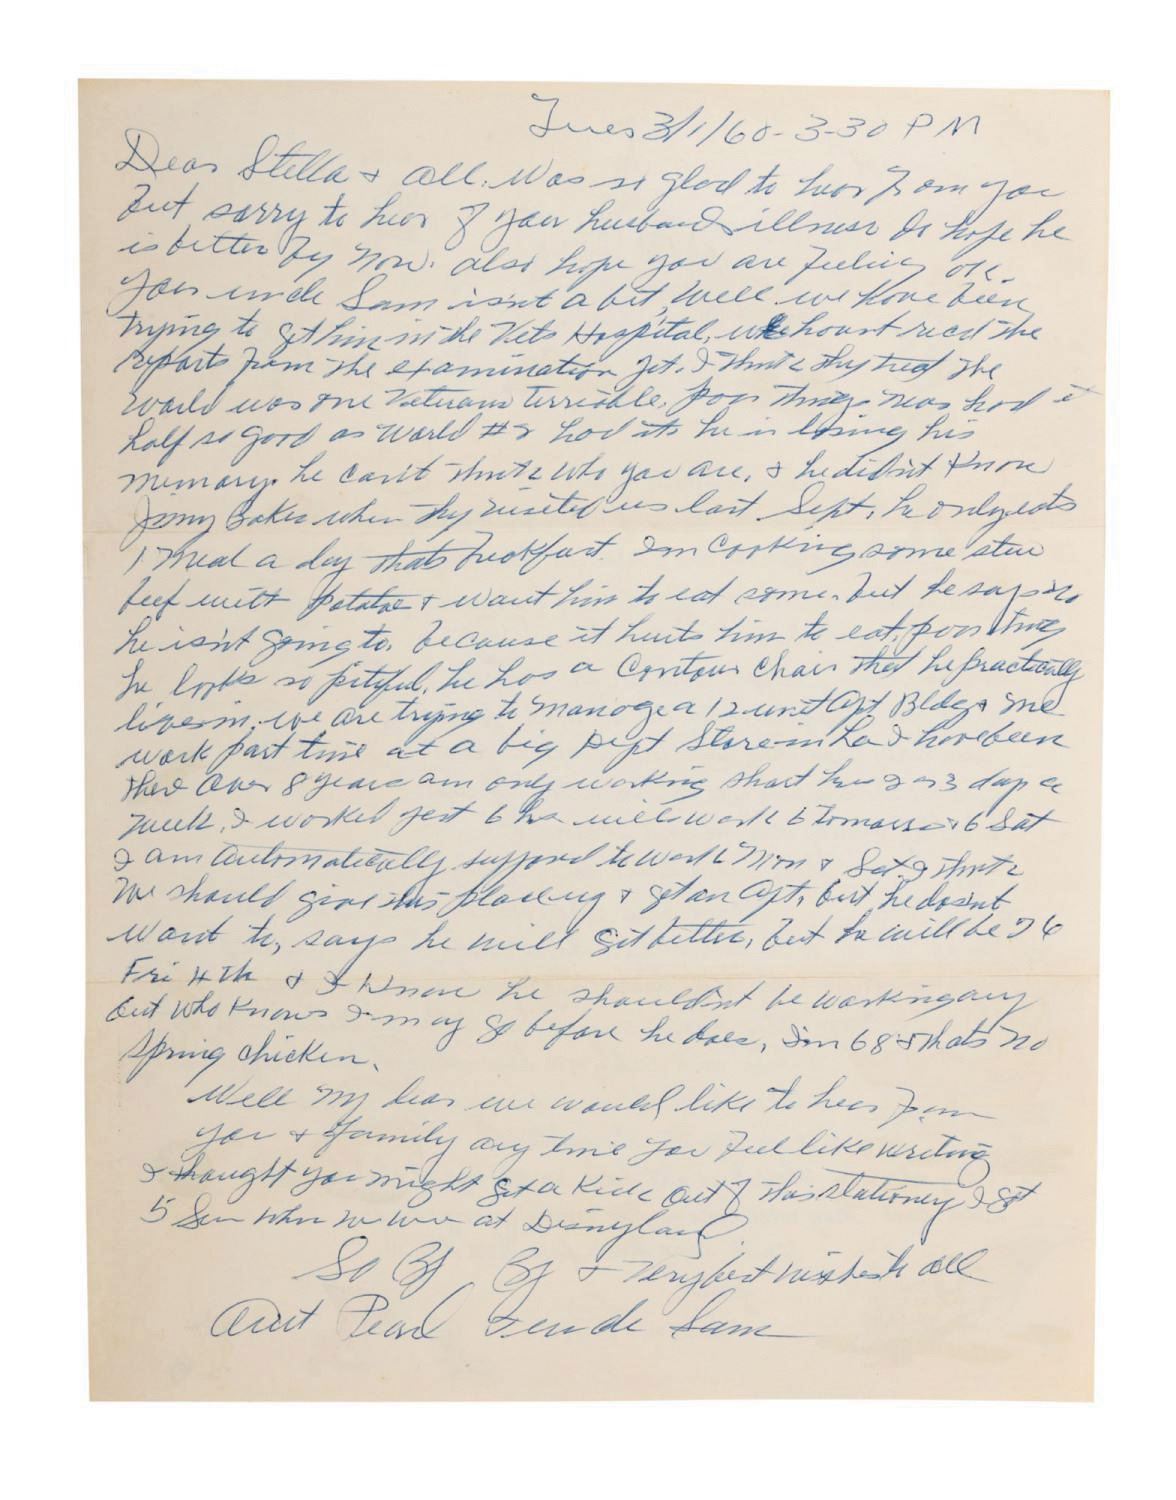 Tues 3/1/60-3-30 PM
Dear Stella & all. Was so glad to hear from you
but sorry to hear of your husbands illness do hope he
is better by now. also hope you are feeling ok.
your uncle Sam isn't a bit well we have been
trying to get him in the Vets Hospital, we havnt recd the
reports from the examination yet. I think they treat the
World war one Veterans terrible. poor things never had it
half so good as World #2 had it. he is losing his
memory. he can't think who you are, & he didn't know
Jimy Baker when they visited us last Sept, he only eats
1 meal a day thats breakfast. Im cooking some stew
beef with potatoe & want him to eat some. but he says no
he isn't going to. because it hurts him to eat, poor thing
he looks so pitiful, he has a Contour Chair that he practically
lives in. we are trying to manage a 12 unit Apt Bldg & me
work part time at a big Dept Store in La I have been
there over 8 years am only working short hrs 2 or 3 days a
week. I worked yest 6 hrs will work 6 tomorrow & 6 Sat
I am automatically supposed to work Mon & Sat. I think
we should give this place up & get an Apt, but he doesnt
want to, says he will get better, but he will be 76
Fri 4th & I know he shouldn't be working any
but who knows I may go before he does, Im 68 & thats no
spring chicken.
Well my dear we would like to hear from
you & family any time you feel like writing
I thought you might get a kick out of this stationey I got
5 when we were at Disneyland.
So By By & very best wishes to all
Aunt Pearl & uncle Sam